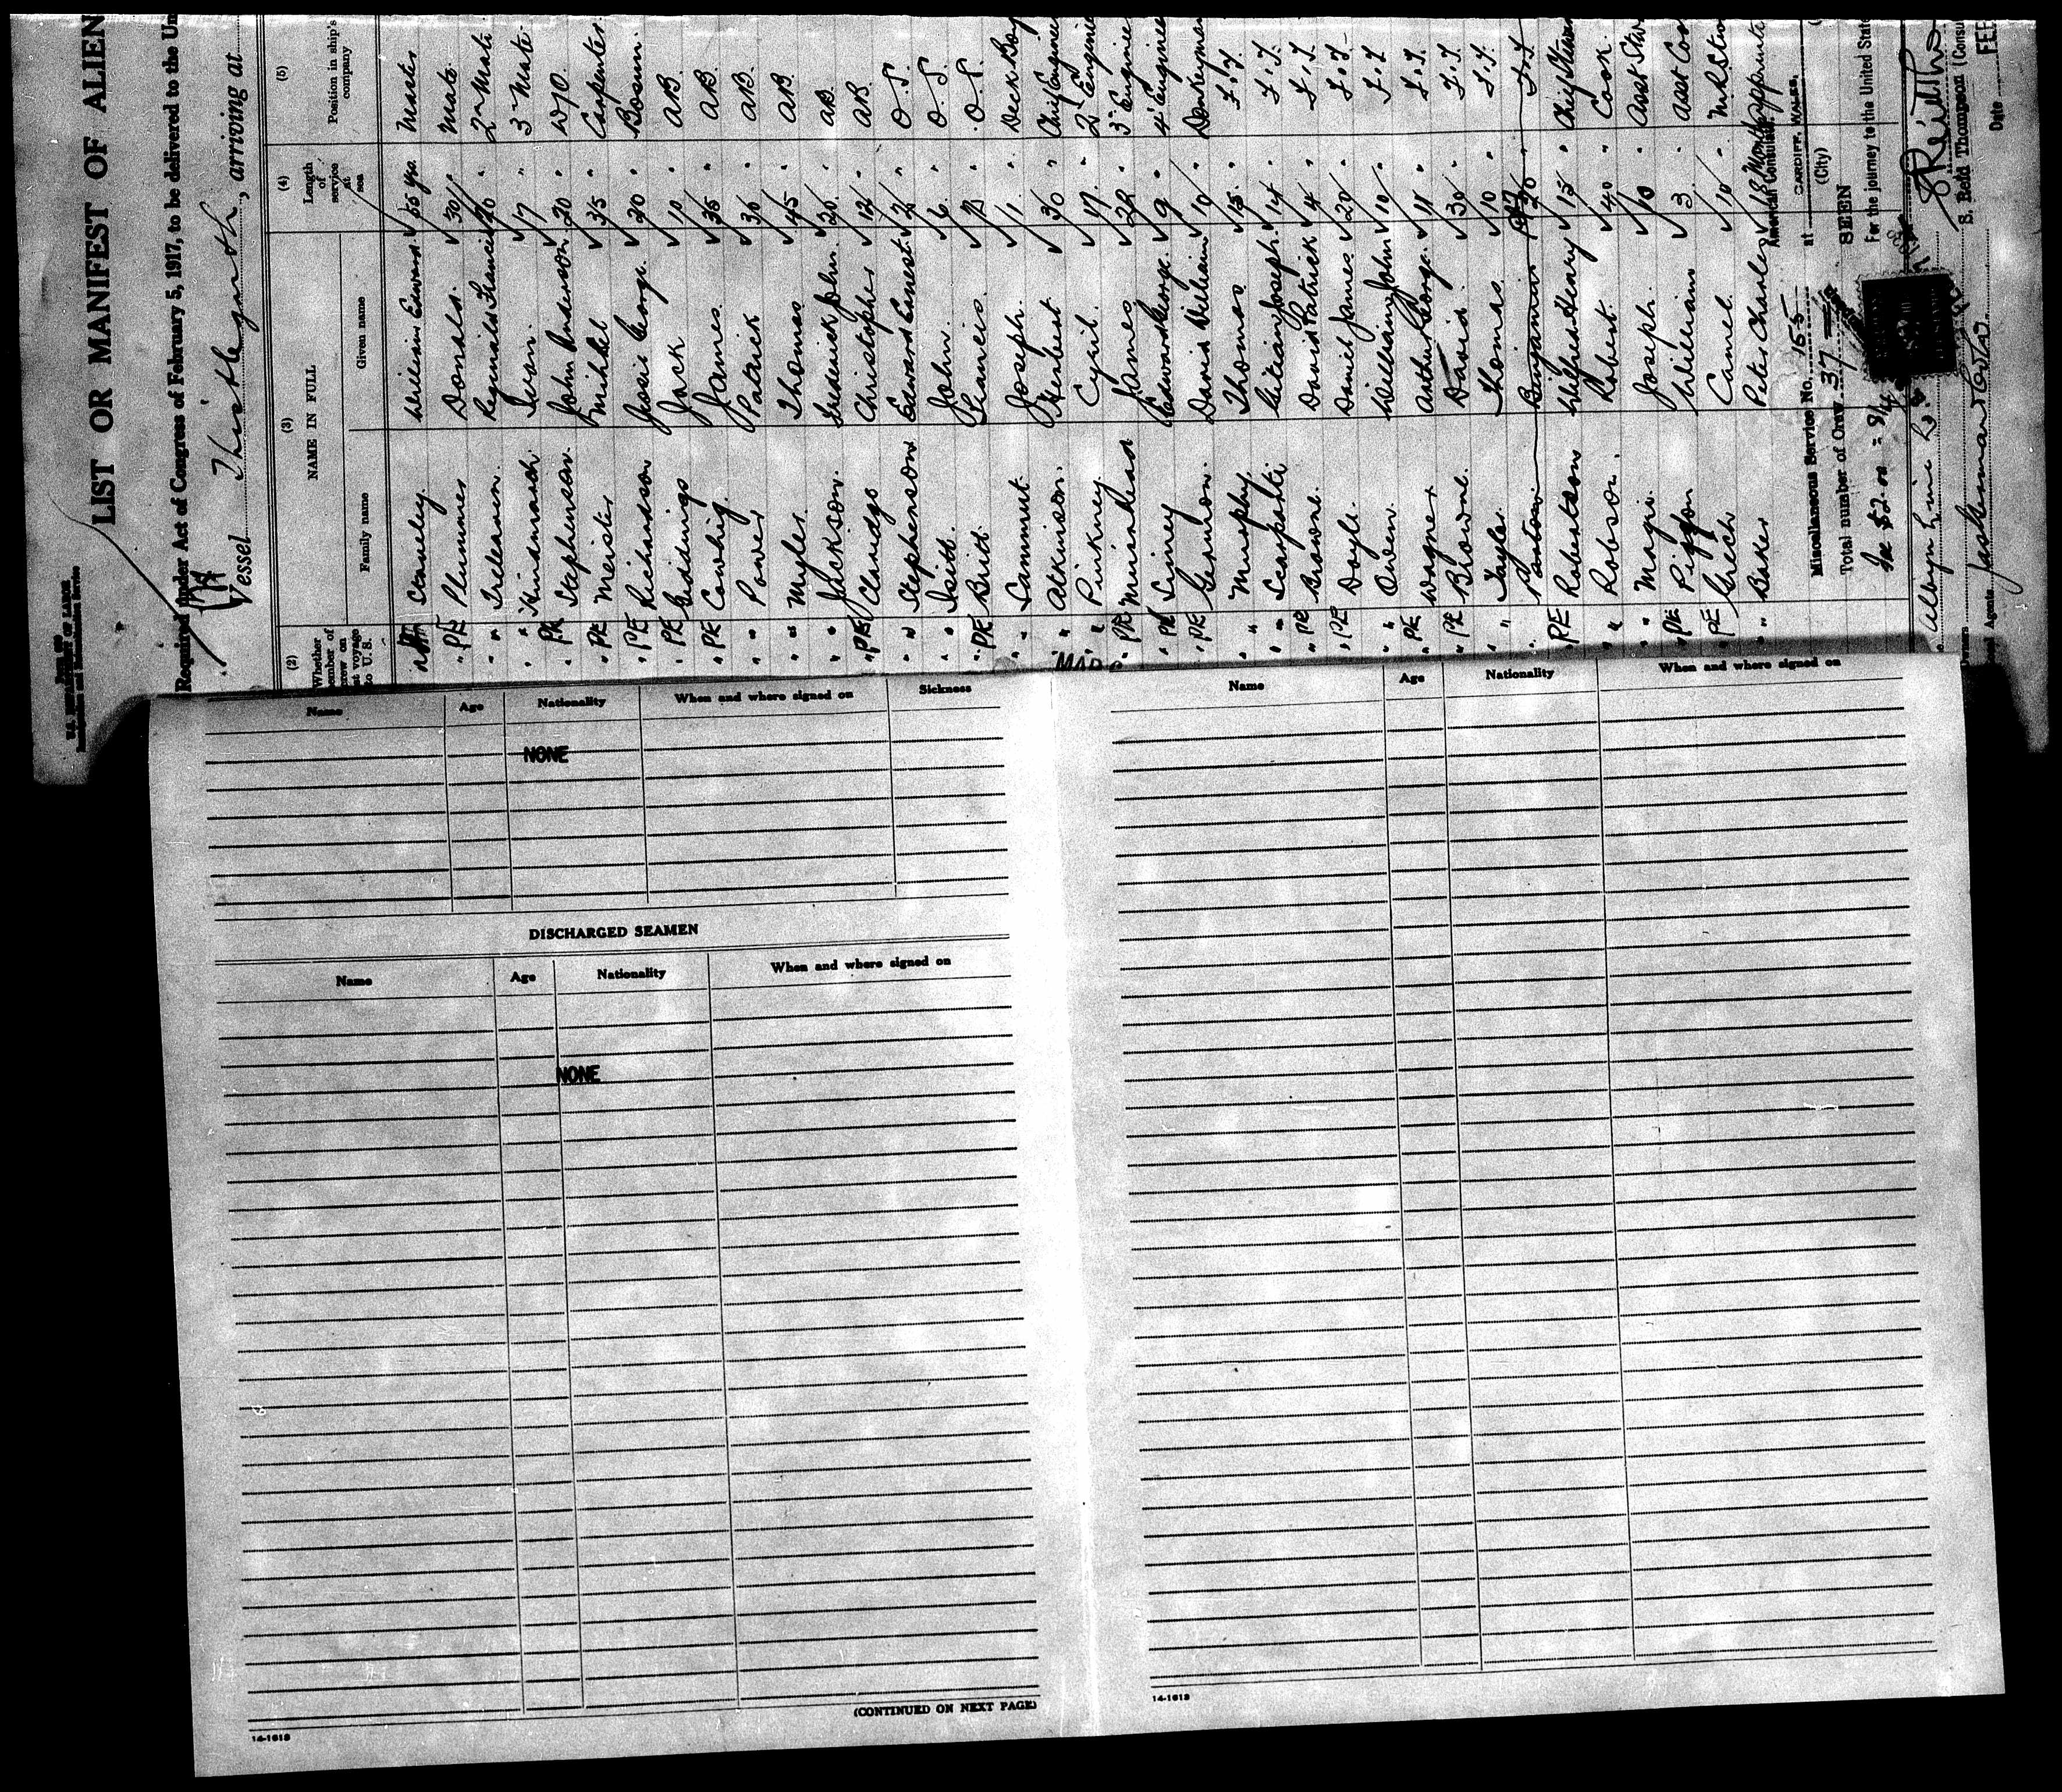 LIST OR MANIFEST OF ALIEN
Required under Act of Congress of February 5, 1917, to be delivered to the Un
Vessel Thistlegarth, arriving at
(2) (3) (4) (5)
NAME IN FULL
Whether member of crew on last voyage to U. S.
Family name Given name Length of service at sea Position in ship's company
Stanley William Edward 55 yrs. Master
PE Plummer Donald. 30 " Mate.
" Reginald Francis 20 " 2nd Mate
" Kindmarsh Ivon. 7 " 3rd Mate
PE Stephenson John Anderson 20 " W/O
PE Meister Mihkel 35 " Carpenter
PE Richardson George. 20 " Bosun.
PE Giddings Jack 10 " A.B.
PE Cowhig James. 35 " A.B.
" Power Patrick 30 " A.B.
" Myles Thomas 45 " A.B.
" Jackson. Frederick John. 20 " A.B.
PE Christopher 12 " A.B.
" Stephenson Edward Earnest. 2 " O.S.
" Isitt. John. 6 " O.S.
PE Britt. Francis. O.S.
" Sammut. Joseph. 1 " Deck Boy
" Atkinson. Herbert 30 " Chief Engineer
" Pinkney. Cyril. 17 " 2nd Engineer
PE Muirhead James 22 " 3rd Enginee
PE Liney Edward George. 9 " 4th Enginee
PE David William 10 " Donkeyman
" Murphy Thomas 15 " F.T.
" Scarpati Joseph. 14 " F.T.
PE Browne. David Patrick 4 " F.T.
PE Doyle. Daniel James 20 " F.T.
" Owen. William John 10 " F.T.
PE Wagner Arthur George. 11 " F.T.
PE Browne. David. 30 " F.T.
" Thomas. 10 " F.T.
Benjamin 20 " F.T.
PE Robertson Wilfred Henry 15 " Chief Steward
" Robson. Robert. 40 " Cook.
" Magri. Joseph. 10 " Asst Stw
PE Piggon William 3 " Asst Coo
PE Grech Camel. 10 " M.R. Stw
" Baker Peter Charles 8 Months Apprentice
American Consulate
at CARDIFF, WALES.
(City)
Miscellaneous Service No. 155
Total number of Crew 37
SEEN
For the journey to the United State
Fee $2.00 =
S. Reid Thompson (Consu
Date FEE
Owners
Local Agents
MAR
Name Age Nationality When and where signed on Sickness
NONE
DISCHARGED SEAMEN
Name Age Nationality When and where signed on
NONE
(CONTINUED ON NEXT PAGE)
14-1613
Name Age Nationality When and where signed on
14-1613